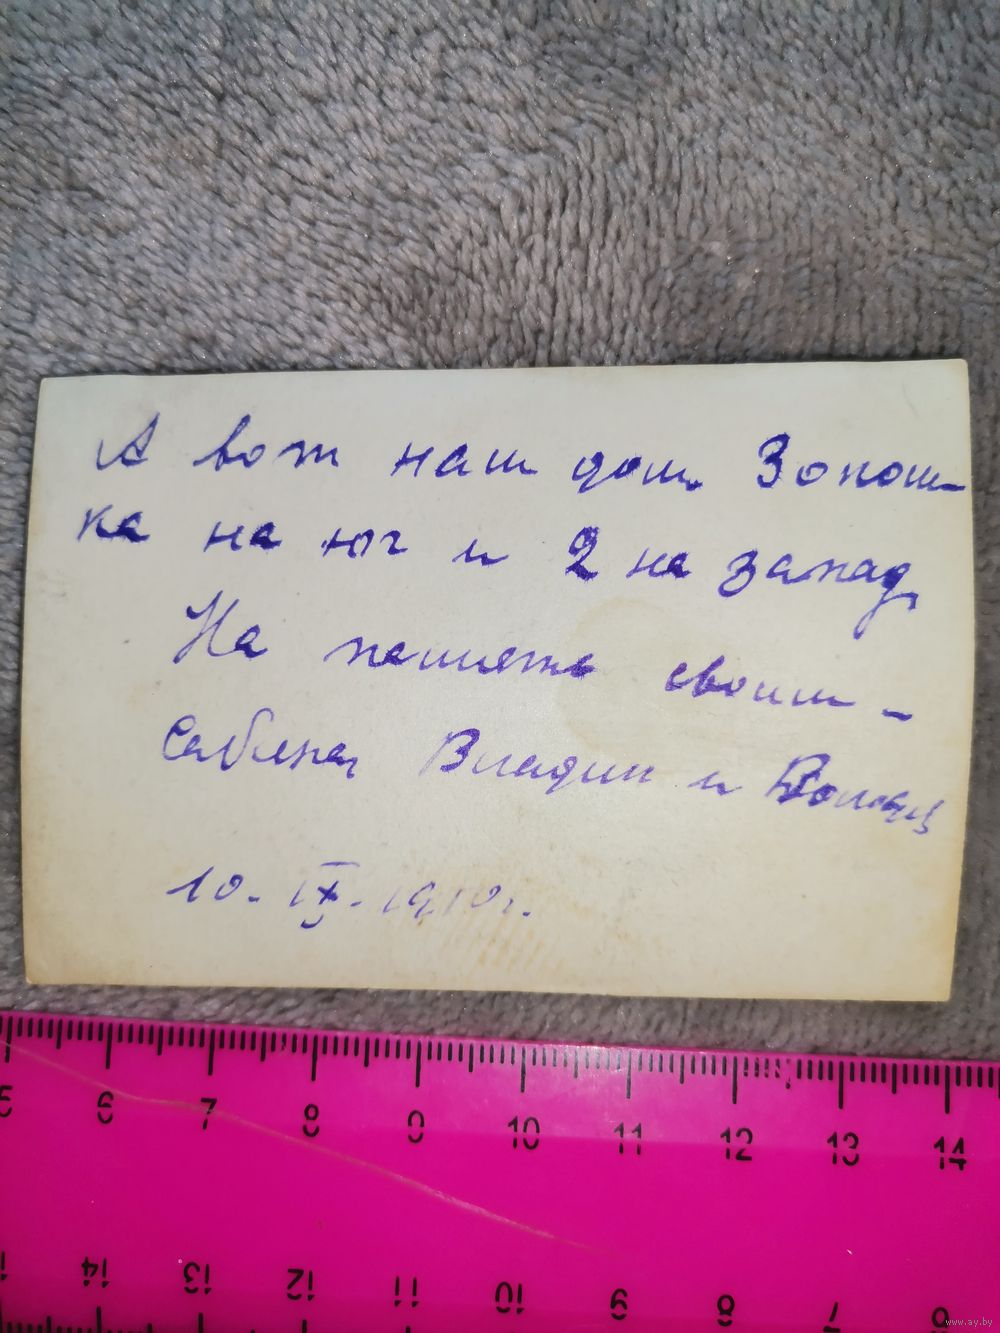 А вот наш дом 3 окош-
ка на юг и 2 на запад,
На память своим -
Владим и
10. IX. 19 г.
5 6 7 8 9 10 11 12 13 14
14 13 12 11 10 9 8 7 6
www.ay.by